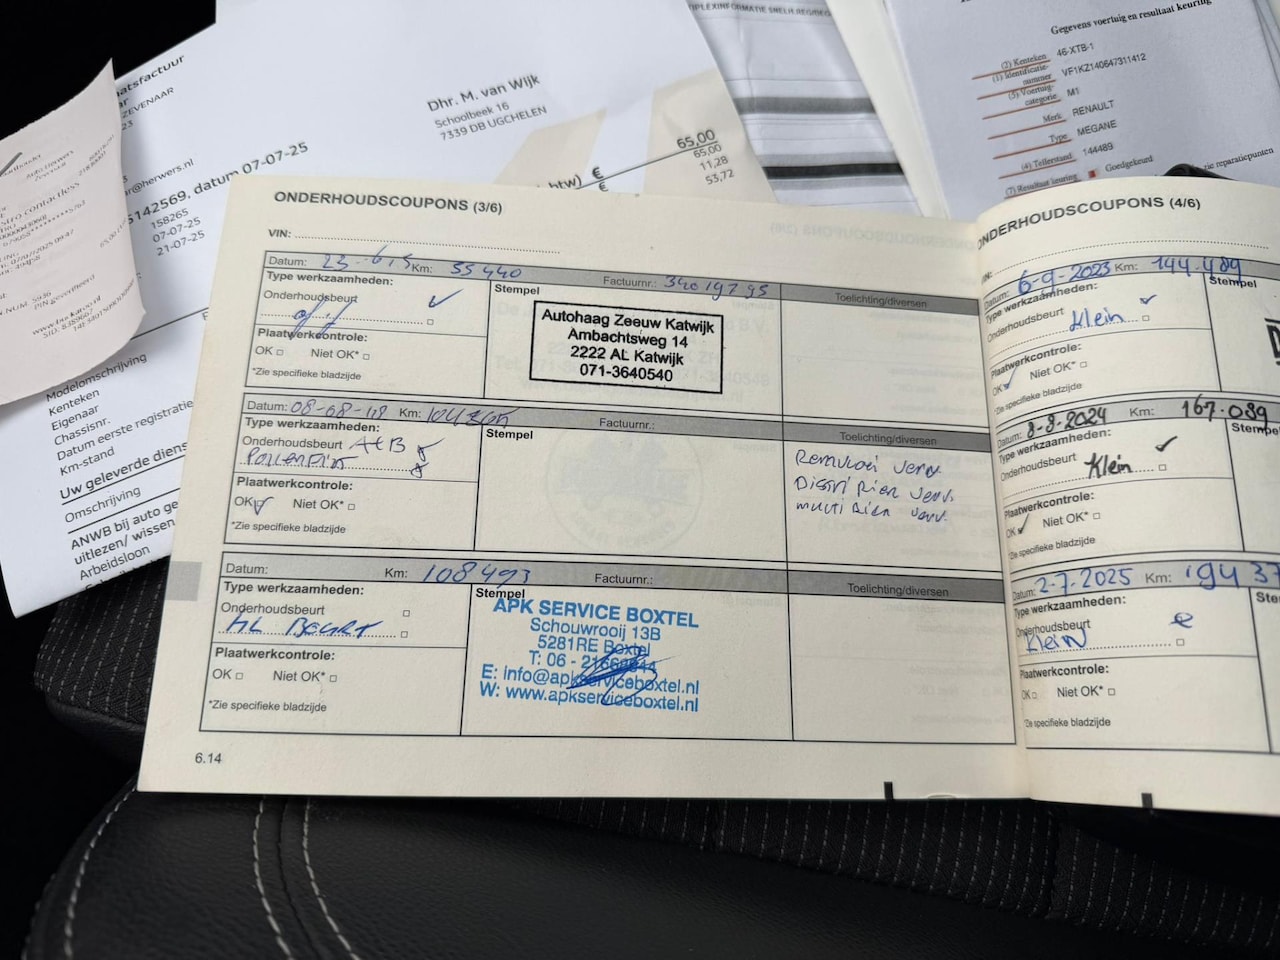 atsfactuur
ZEVENAAR
ar@herwers.nl
5142569. datum 07-07-25
158265
07-07-25
21-07-25
Dhr. M. van Wijk
Schoolbeek 16
7339 DB UGCHELEN
€ 65,00
btw) € 65,00
11,28
53,72
Modelomschrijving
Kenteken
Eigenaar
Chassisnr.
Datum eerste registratie
Km-stand
Uw geleverde diens
Omschrijving
ANWB bij auto ge
uitlezen/ wissen
Arbeidsloon
Gegevens voertuig en resultaat keuring
(2) Kenteken 46-XTB-1
(1) Identificatie-
nummer VF1KZ140647311412
(3) Voertuig-
categorie M1
Merk RENAULT
Type MEGANE
(4) Tellerstand 144489
(7) Resultaat keuring Goedgekeurd
reparatiepunten
ONDERHOUDSCOUPONS (3/6)
VIN:
Datum: 23-6-15 Km: 55440 Factuurnr.: 34019795
Type werkzaamheden:
Stempel
Toelichting/diversen
Onderhoudsbeurt
Plaatwerkcontrole:
OK Niet OK*
*Zie specifieke bladzijde
Autohaag Zeeuw Katwijk
Ambachtsweg 14
2222 AL Katwijk
071-3640540
Datum: 08-08-18 Km: Factuurnr.:
Type werkzaamheden:
Stempel
Toelichting/diversen
Onderhoudsbeurt
Pollenfilter
Plaatwerkcontrole:
OK Niet OK*
*Zie specifieke bladzijde
Remvloei verv
Distri Riem verv.
multi Riem verv.
Datum: Km: 108493 Factuurnr.:
Type werkzaamheden:
Stempel
Toelichting/diversen
Onderhoudsbeurt
KL BEURT
Plaatwerkcontrole:
OK Niet OK*
*Zie specifieke bladzijde
APK SERVICE BOXTEL
Schouwrooij 13B
5281RE Boxtel
T: 06 -
E: info@apkserviceboxtel.nl
W: www.apkserviceboxtel.nl
6.14
ONDERHOUDSCOUPONS (4/6)
Datum: 6-9-2023 Km: 144.489
Type werkzaamheden:
Stempel
Onderhoudsbeurt
Klein
Plaatwerkcontrole:
OK Niet OK*
*Zie specifieke bladzijde
Datum: 8-8-2024 Km: 167.039
Type werkzaamheden:
Stempel
Onderhoudsbeurt
Klein
Plaatwerkcontrole:
OK Niet OK*
*Zie specifieke bladzijde
Datum: 2-7-2025 Km: 194 37
Type werkzaamheden:
Ste
Onderhoudsbeurt
Klein
Plaatwerkcontrole:
OK Niet OK*
*Zie specifieke bladzijde